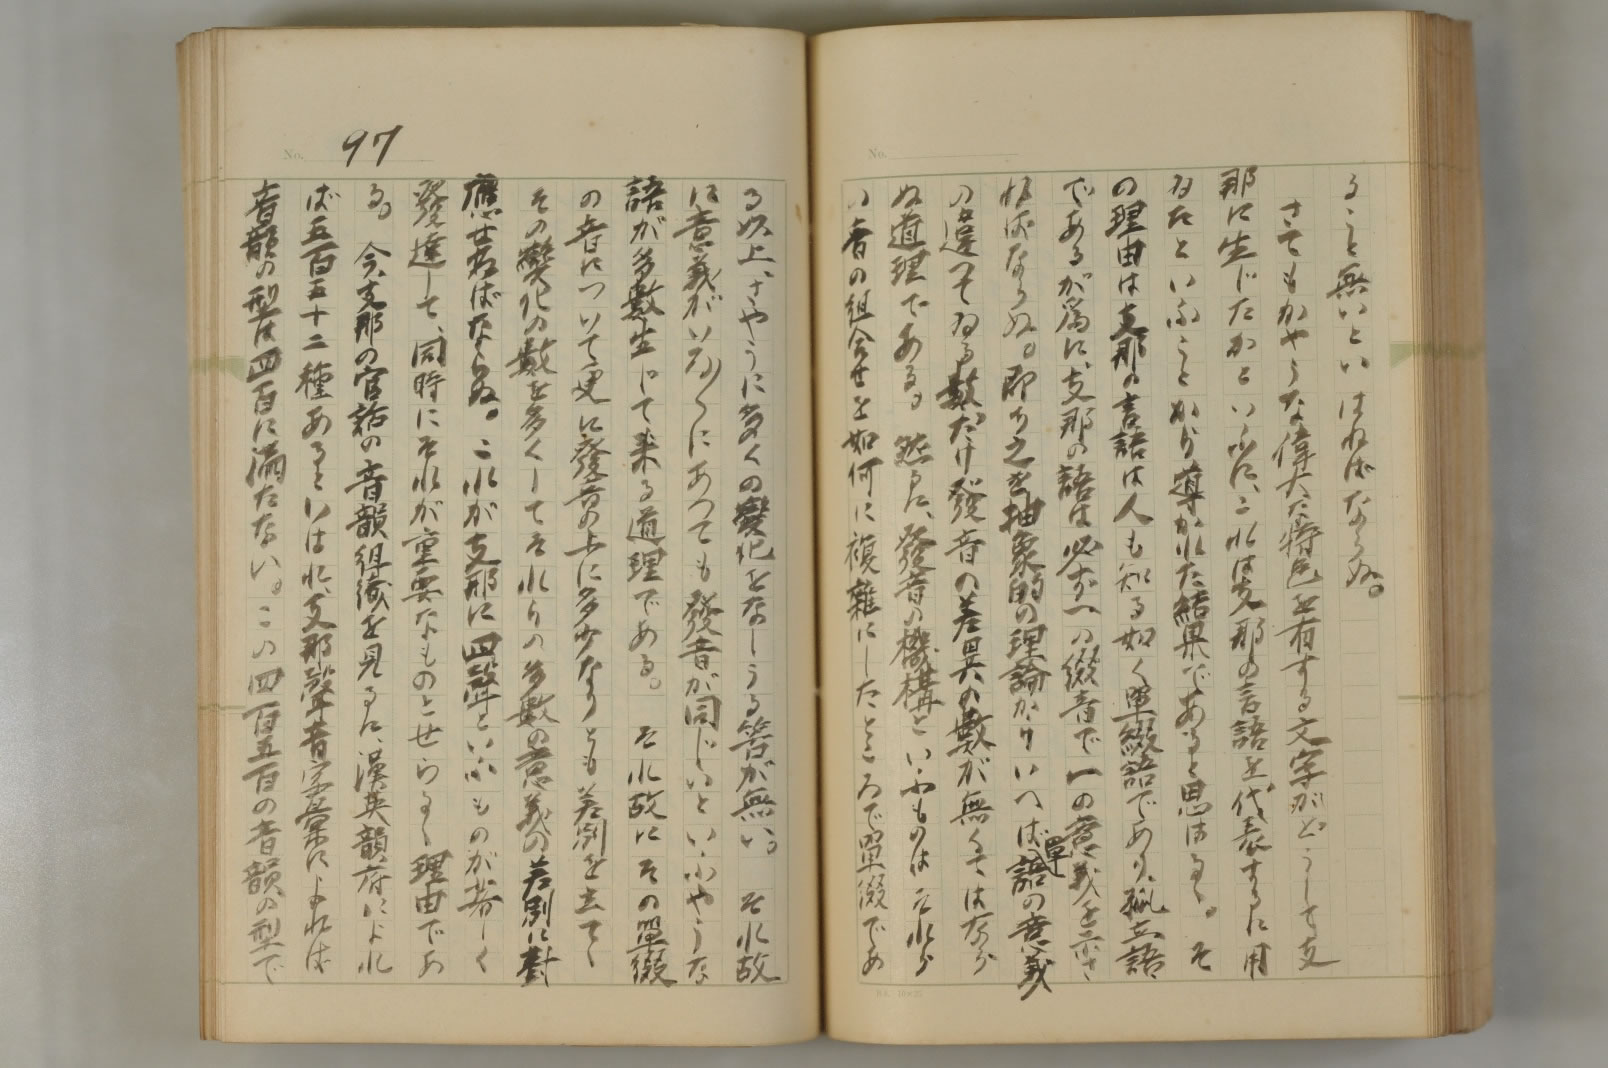 ること無いといはねばならぬ。
さてもかやうな偉大な特色を有する文字がどうして支
那に生じたかといふに、これは支那の言語を代表するに用
ゐたといふことから導かれた結果であると思はるゝ。そ
の理由は支那の言語は人も知る如く單綴語であり、孤立語
であるが為に、支那の語は必ず一の綴音で一の意義を示さ
ねばならぬ。即ち之を抽象的の理論からいへば、單語の意義
の違つてゐる數だけ發音の差異の數が無くてはなら
ぬ道理である。然るに、發音の機構といふものはこれら
の音の組合せを如何に複雜にしたところで單綴であ
No. 97
る以上、さやうに多くの變化をなしうる筈が無い。それ故
に意義がいろ〳〵にあつても發音が同じいといふやうな
語が多數生じて来る道理である。それ故にその單綴
の音について更に發音の上に多少なりとも差別を立てゝ
その變化の數を多くしてそれらの多數の意義の差別に對
應せねばならぬ。これが支那に四聲といふものが著しく
發達して、同時にそれが重要なものとせらるゝ理由であ
る。今、支那の官話の音韻組織を見るに、漢英韻府によれ
ば五百五十二種あるといはれ、支那聲音字彙によれば
音韻の型は四百に満たない。この四百五百の音韻の型で
No.